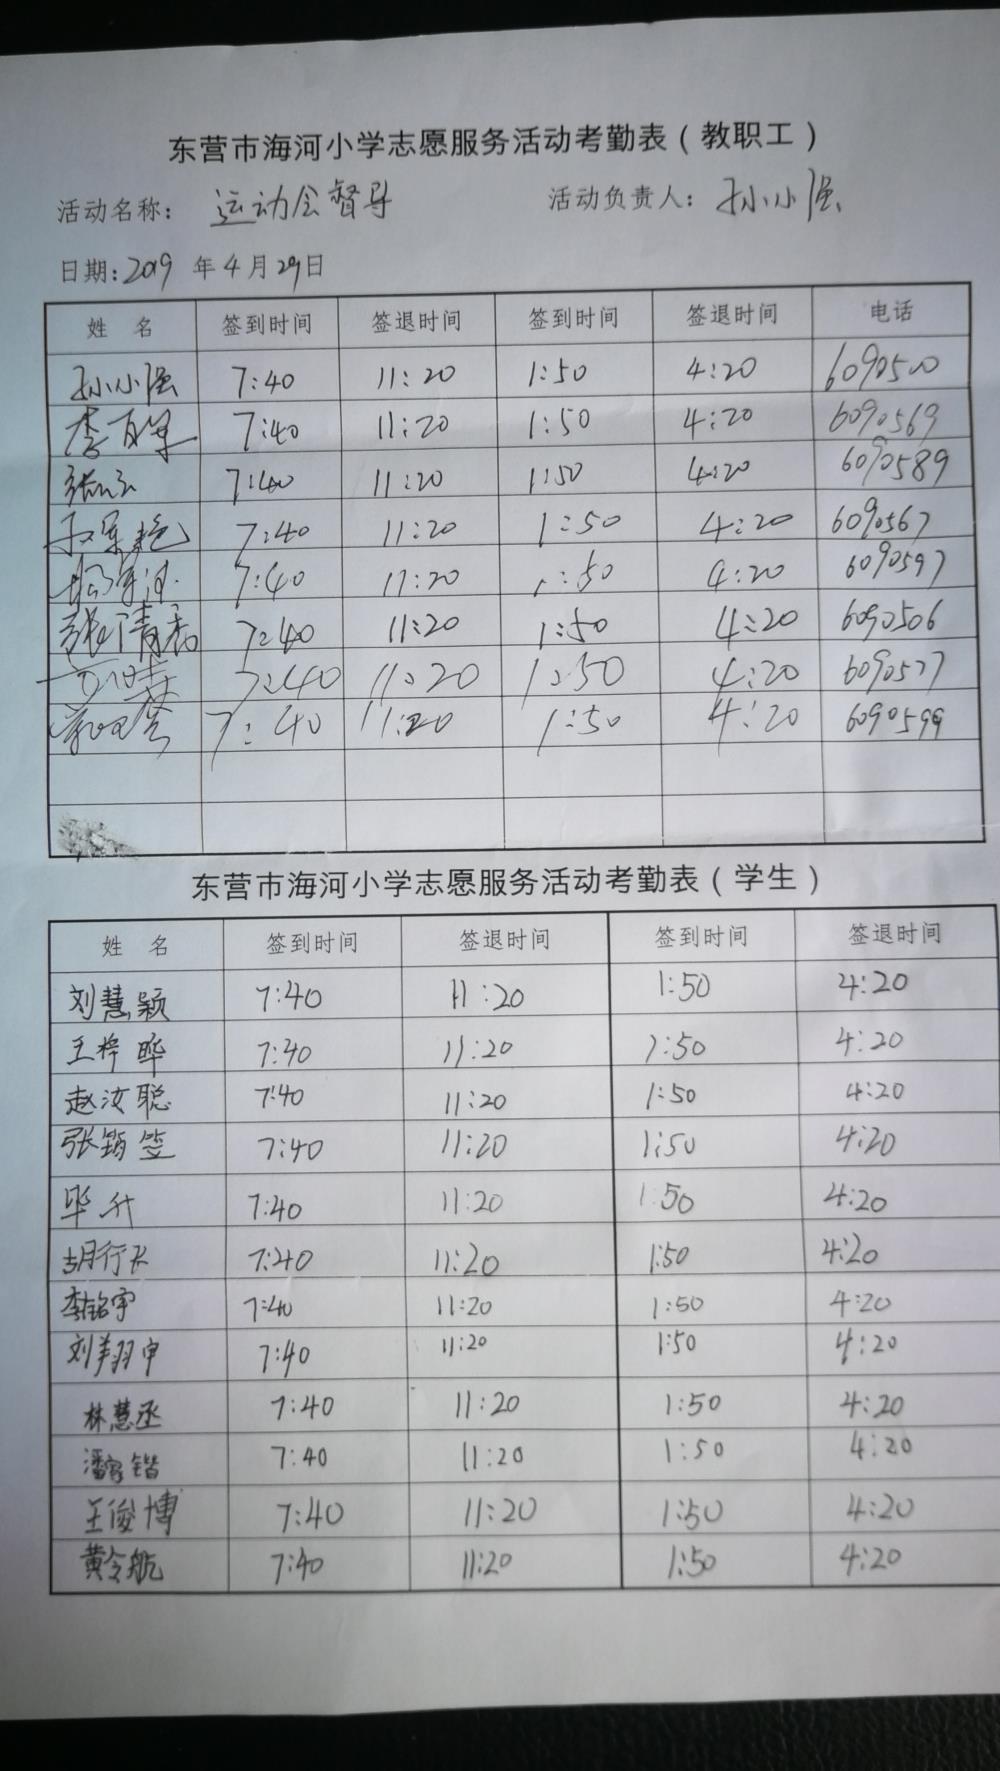 东营市海河小学志愿服务活动考勤表（教职工）
活动名称： 运动会督导 活动负责人： 孙小强
日期：2019 年 4 月 29 日
姓 名 签到时间 签退时间 签到时间 签退时间 电话
孙小强 7:40 11:20 1:50 4:20 6090500
7:40 11:20 1:50 4:20 6090569
7:40 11:20 1:50 4:20 6090589
7:40 11:20 1:50 4:20 6090567
7:40 11:20 1:50 4:20 6090597
张清秀 7:40 11:20 1:50 4:20 6090506
7:40 11:20 1:50 4:20 6090577
7:40 11:20 1:50 4:20 6090599
东营市海河小学志愿服务活动考勤表（学生）
姓 名 签到时间 签退时间 签到时间 签退时间
刘慧颖 7:40 11:20 1:50 4:20
王梓晔 7:40 11:20 1:50 4:20
赵汝聪 7:40 11:20 1:50 4:20
张筠笠 7:40 11:20 1:50 4:20
毕升 7:40 11:20 1:50 4:20
胡行 7:40 11:20 1:50 4:20
李铭宇 7:40 11:20 1:50 4:20
刘翔申 7:40 11:20 1:50 4:20
林慧丞 7:40 11:20 1:50 4:20
潘家锴 7:40 11:20 1:50 4:20
王俊博 7:40 11:20 1:50 4:20
黄令航 7:40 11:20 1:50 4:20